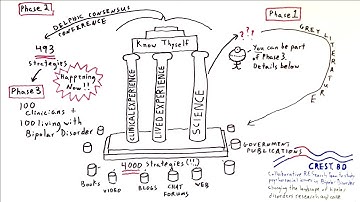 Phase 2
DELPHIC CONSENSUS
CONFERENCE
493
strategies
Happening
Now!!
Phase 3
100
Clinicians +
100 living with
Bipolar Disorder
Know Thyself
CLINICAL EXPERIENCE
LIVED EXPERIENCE
SCIENCE
4000 Strategies (!!)
Books
VIDEO
BLOGS
CHAT
FORUMS
WEB
GOVERNMENT
PUBLICATIONS
Phase 1
GREY LITERATURE
???
You can be part
of Phase 3.
Details below
CREST.BD
Collaborative RESearch Team to study
psychosocial issues in Bipolar Disorder
Changing the landscape of bipolar
disorders research and care